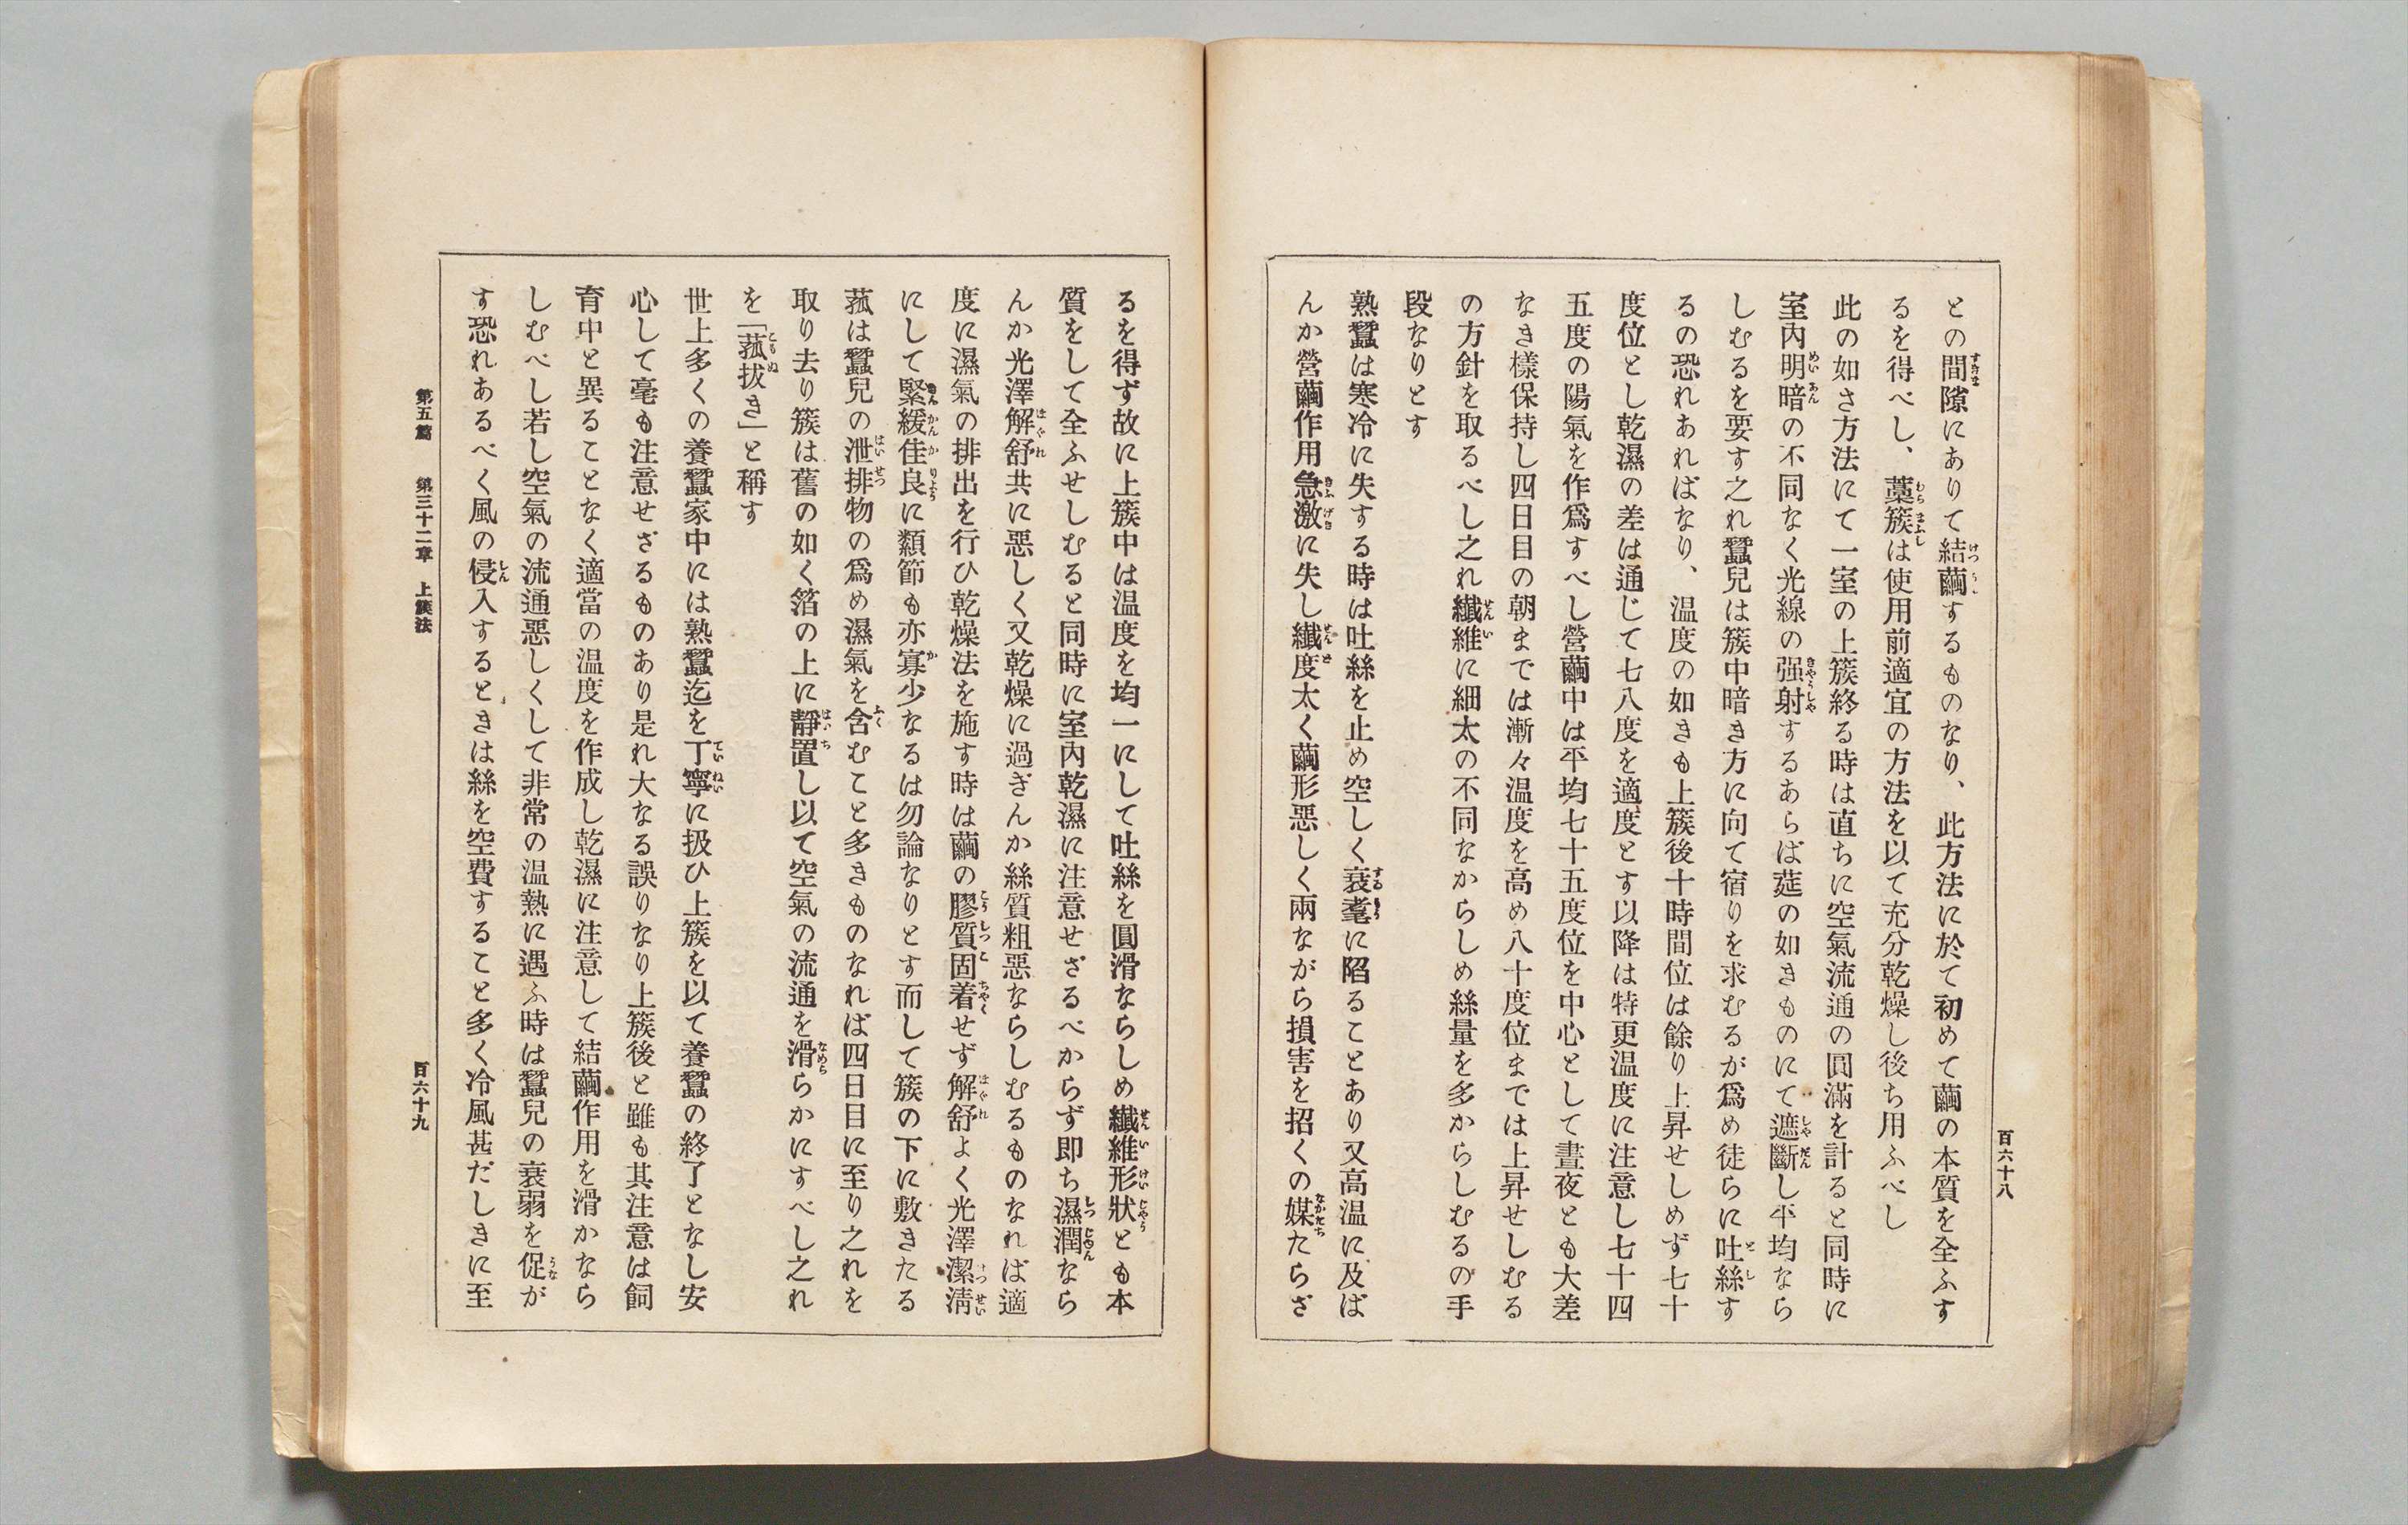 百六十八
との間隙にありて結繭するものなり、此方法に於て初めて繭の本質を全ふす
るを得べし、藁簇は使用前適宜の方法を以て充分乾燥し後ち用ふべし
此の如さ方法にて一室の上簇終る時は直ちに空氣流通の圓滿を計ると同時に
室內明暗の不同なく光線の强射するあらば莚の如きものにて遮斷し平均なら
しむるを要す之れ蠶兒は簇中暗き方に向て宿りを求むるが爲め徒らに吐絲す
るの恐れあればなり、溫度の如きも上簇後十時間位は餘り上昇せしめず七十
度位とし乾濕の差は通じて七八度を適度とす以降は特更溫度に注意し七十四
五度の陽氣を作爲すべし營繭中は平均七十五度位を中心として晝夜とも大差
なき樣保持し四日目の朝までは漸々溫度を高め八十度位までは上昇せしむる
の方針を取るべし之れ纖維に細太の不同なからしめ絲量を多からしむるの手
段なりとす
熟蠶は寒冷に失する時は吐絲を止め空しく衰耄に陷ることあり又高溫に及ば
んか營繭作用急激に失し纖度太く繭形惡しく兩ながら損害を招くの媒たらざ
るを得ず故に上簇中は溫度を均一にして吐絲を圓滑ならしめ纖維形狀とも本
質をして全ふせしむると同時に室內乾濕に注意せざるべからず卽ち濕潤なら
んか光澤解舒共に惡しく又乾燥に過ぎんか絲質粗惡ならしむるものなれば適
度に濕氣の排出を行ひ乾燥法を施す時は繭の膠質固着せず解舒よく光澤潔淸
にして緊緩佳良に纇節も亦寡少なるは勿論なりとす而して簇の下に敷きたる
菰は蠶兒の泄排物の爲め濕氣を含むこと多きものなれば四日目に至り之れを
取り去り簇は舊の如く箔の上に靜置し以て空氣の流通を滑らかにすべし之れ
を「菰拔き」と稱す
世上多くの養蠶家中には熟蠶迄を丁寧に扱ひ上簇を以て養蠶の終了となし安
心して毫も注意せざるものあり是れ大なる誤りなり上簇後と雖も其注意は飼
育中と異ることなく適當の溫度を作成し乾濕に注意して結繭作用を滑かなら
しむべし若し空氣の流通惡しくして非常の溫熱に遇ふ時は蠶兒の衰弱を促が
す恐れあるべく風の侵入するときは絲を空費すること多く冷風甚だしきに至
第五篇 第三十二章 上簇法
百六十九